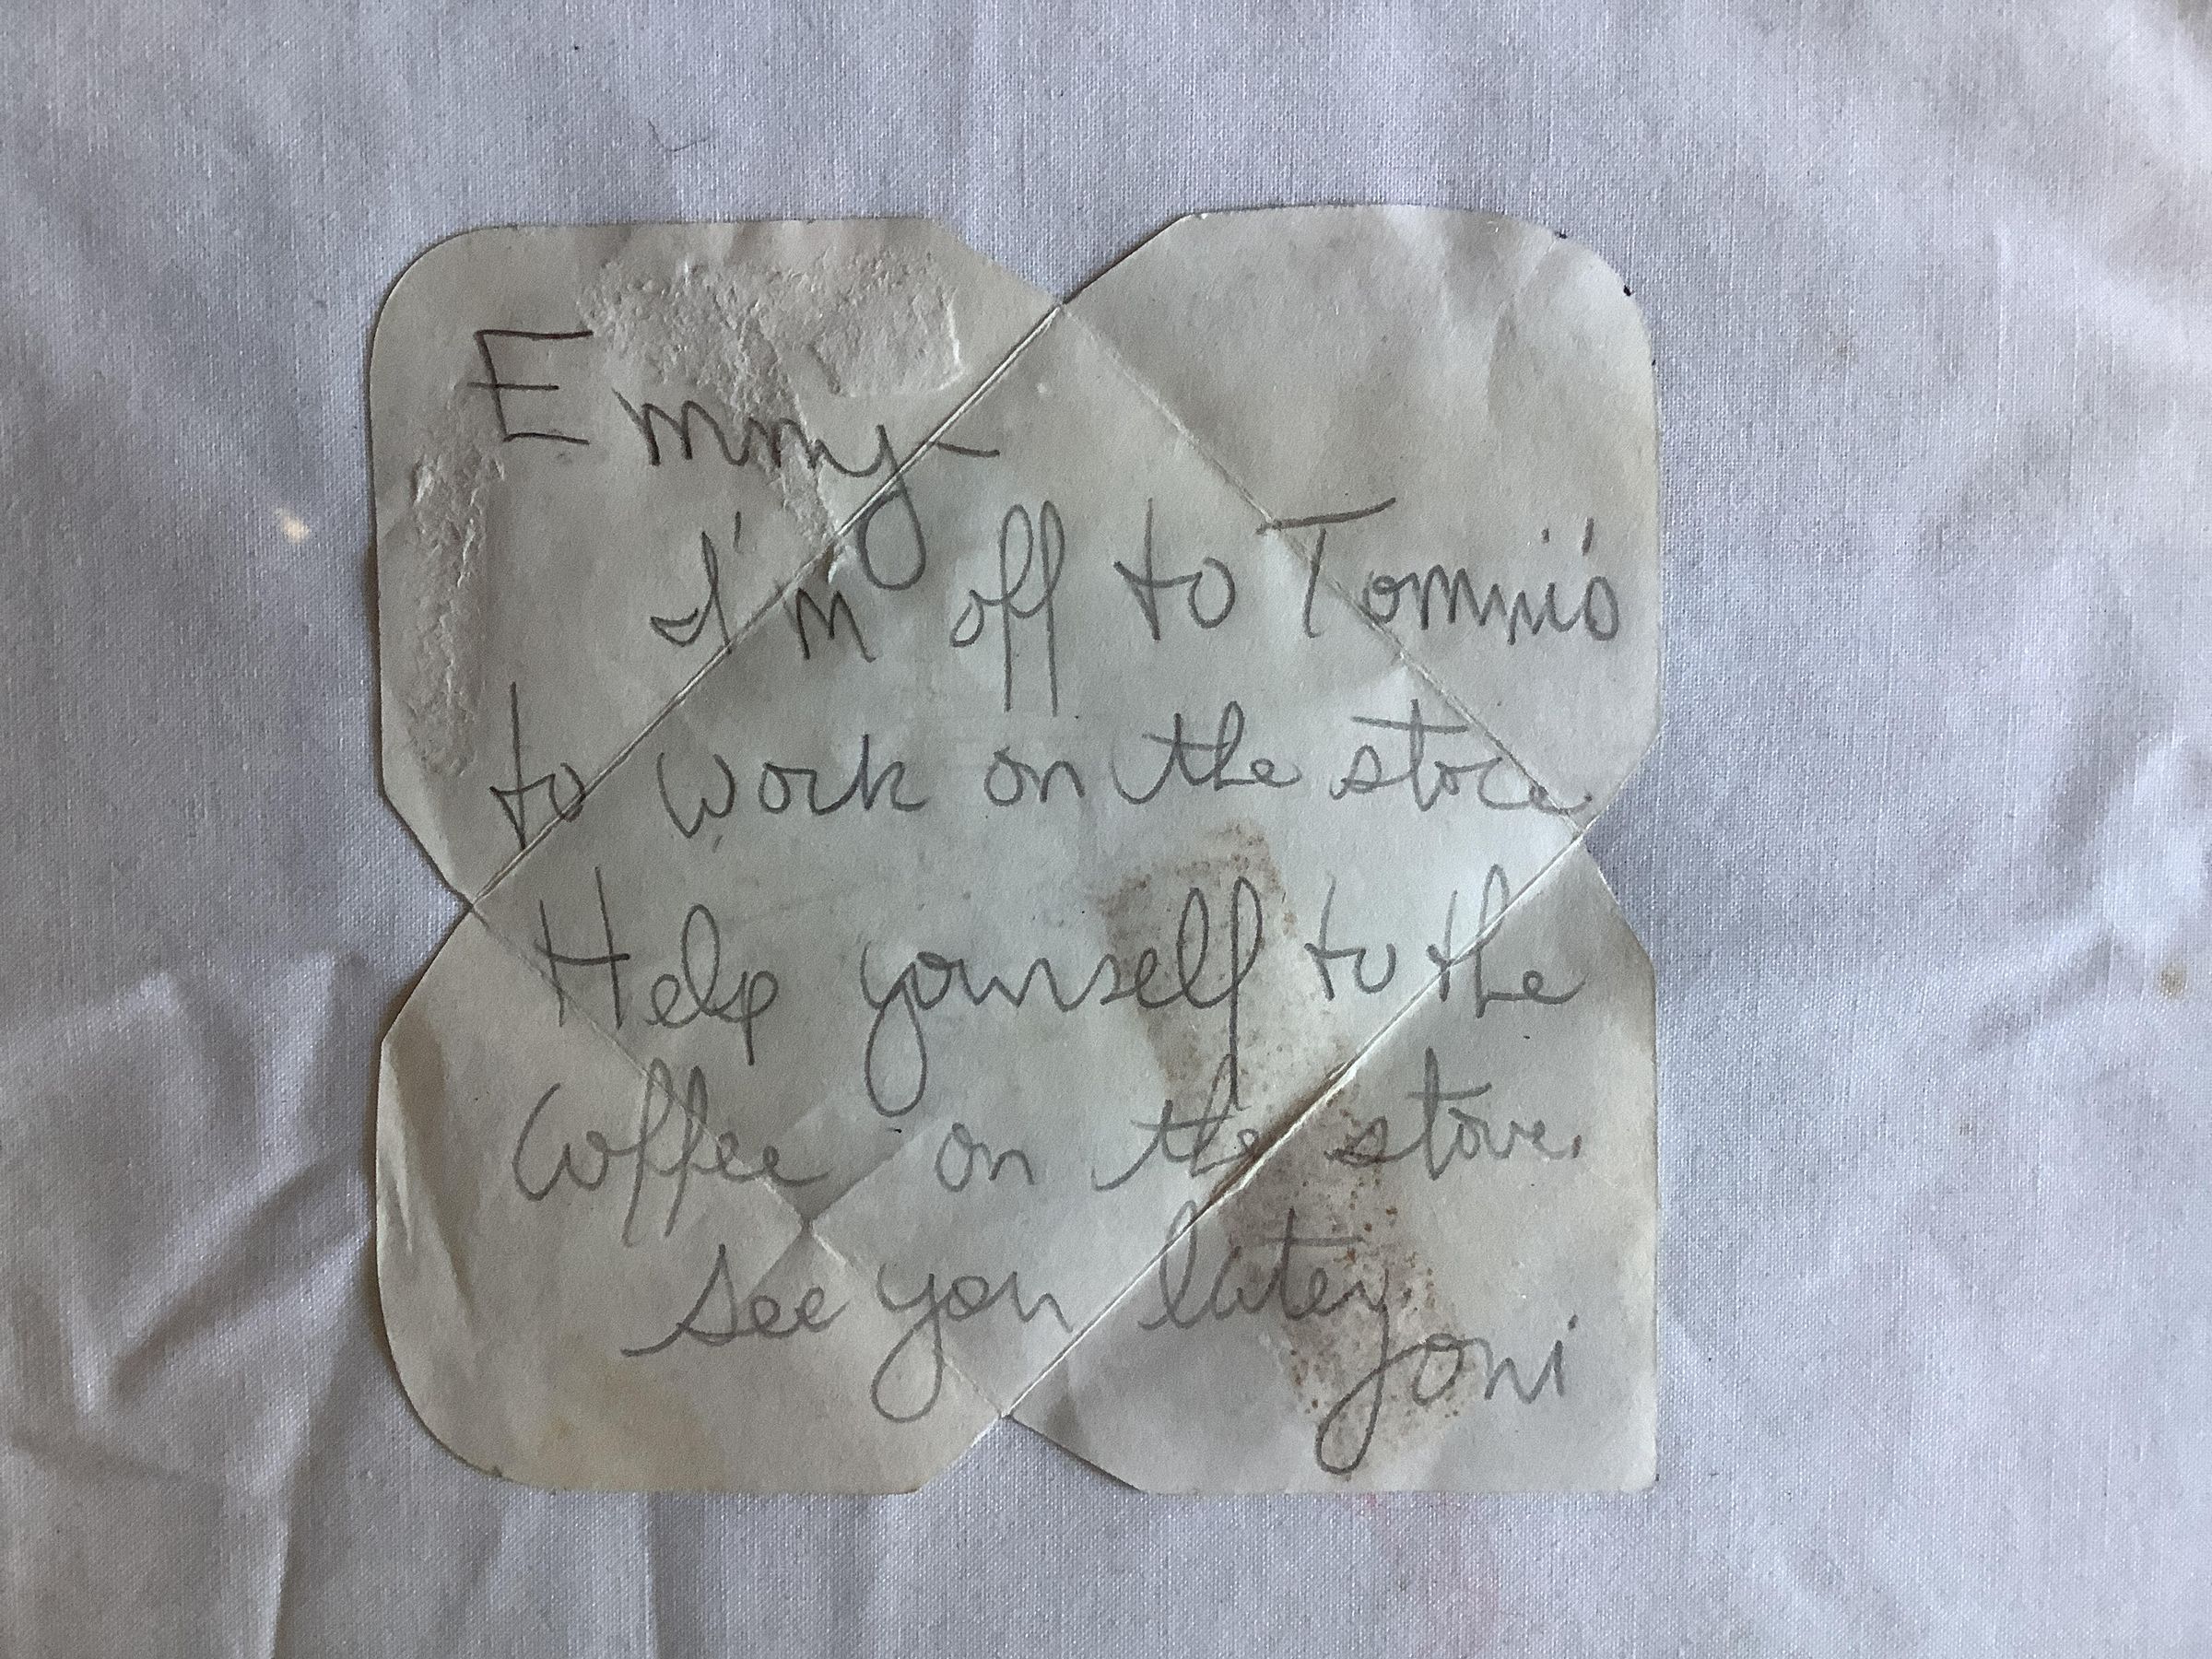 Emmy-
I'm off to Tommi's
to work on the store.
Help yourself to the
coffee on the stove.
see you later,
Joni